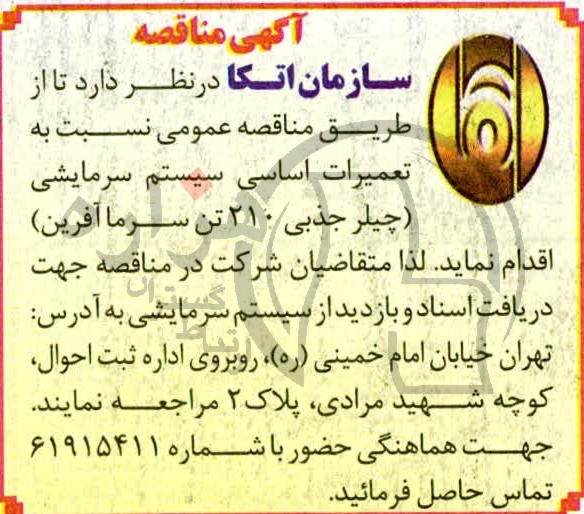 آگهی مناقصه
سازمان اتکا درنظر دارد تا از
طریق مناقصه عمومی نسبت به
تعمیرات اساسی سیستم سرمایشی
(چیلر جذبی ۲۱۰ تن سرما آفرین)
اقدام نماید. لذا متقاضیان شرکت در مناقصه جهت
دریافت اسناد و بازدید از سیستم سرمایشی به آدرس:
تهران خیابان امام خمینی (ره)، روبروی اداره ثبت احوال،
کوچه شهید مرادی، پلاک ۲ مراجعه نمایند.
جهت هماهنگی حضور با شماره ۶۱۹۱۵۴۱۱
تماس حاصل فرمائید.
هزاره
گستران
ارتباط